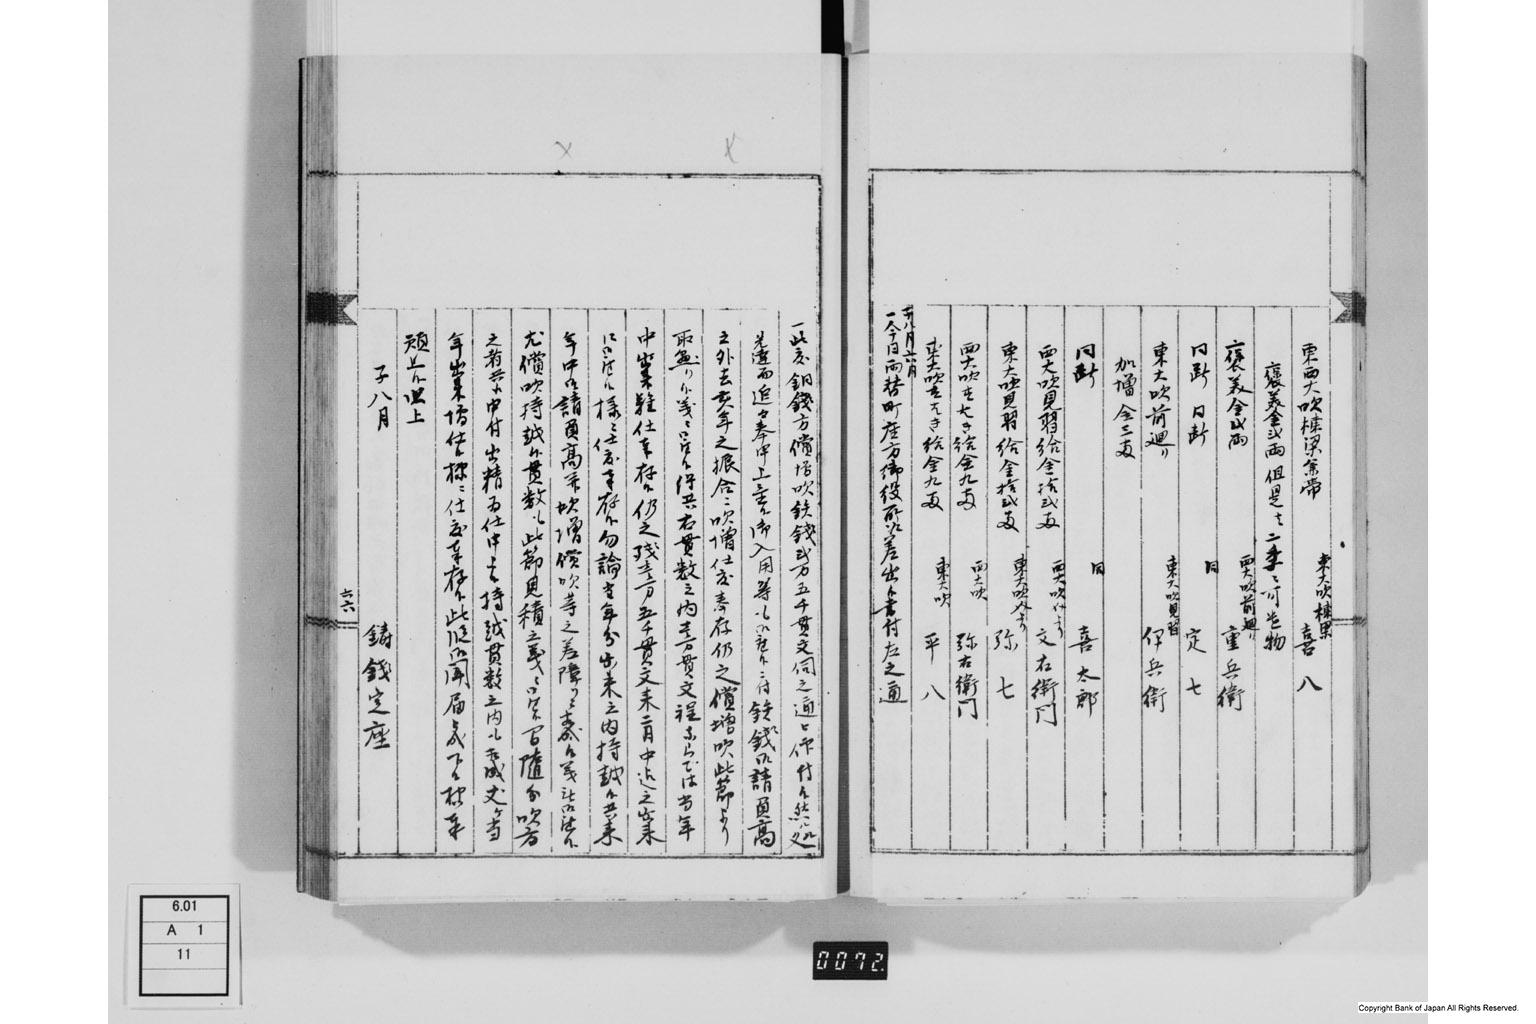 東西大吹棟梁兼帯
東大吹棟梁
喜八
褒美金弐両
但是者
物
褒美金弐両
西大吹前廻り
重兵衛
同断 同断
同
定七
東大吹前廻り
東大吹見習
伊兵衛
加増金三両
同断
同
喜太郎
西大吹見習給金拾弐両
西大吹
文右衛門
東大吹見習給金拾弐両
東大吹
弥七
西大吹 給金九両
西大吹
弥右衛門
東大吹 給金九両
東大吹
平八
八月六日
一今日両替町座方御役所江差出候書付左之通
一此度銅銭方償増吹鉄銭弐万五千貫文伺之通被仰付候然ル処
先達而追々奉申上置候御入用等も 付鉄銭御請負高
之外去亥年之振合ニ吹増仕度奉存仍之償増吹此節より
取 候 共右貫数之内壱万貫文程ならでは当年
中出来難仕奉存候仍之残壱万五千貫文来二月中迄之出来
様ニ仕度奉存候勿論当年分出来之内持越候共来
年中御請負高并吹増償吹等之差障 候義
尤償吹持越候貫数も此節見積之義ニ 間随分吹方
之者共江申付出精為仕申 持越貫数之内も 丈ケ当
年出来増仕候様ニ仕度奉存候此段御聞届被成下候様奉
願上候以上
子八月
鋳銭定座
六六
6.01
A 1
11
0072.
Copyright Bank of Japan All Rights Reserved.